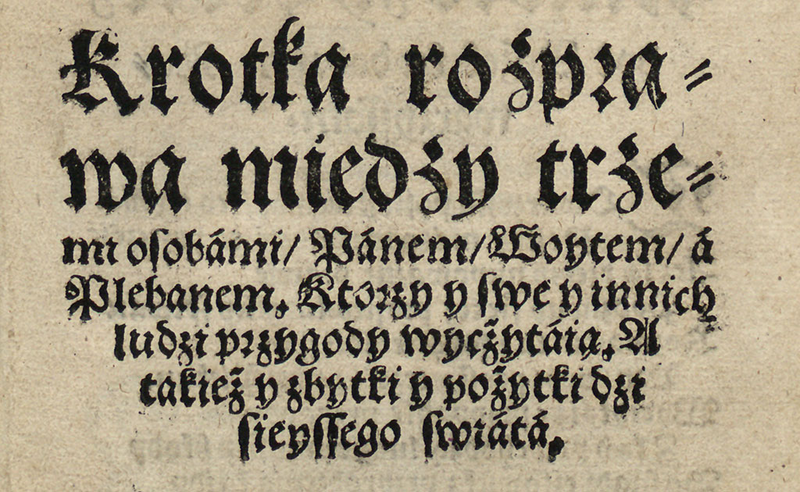 Krotka rozpra⸗
wa miedzy trze⸗
mi osobámi/ Pánem/ Woytem/ á
Plebanem. Ktorzy y swe y innich
ludzi przygody wyczżytáia. A
takież y zbytki y pożytki dzi
sieyssego swiátá.